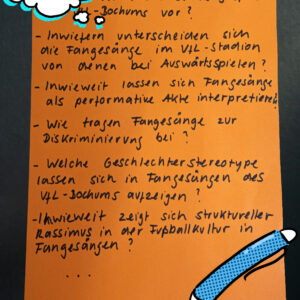 VfL-Bochums vor?
- Inwiefern unterscheiden sich
die Fangesänge im VfL-Stadion
von denen bei Auswärtsspielen?
- Inwieweit lassen sich Fangesänge
als performative Akte interpretieren?
- Wie tragen Fangesänge zur
Diskriminierung bei?
- Welche Geschlechterstereotype
lassen sich in Fangesängen des
VfL-Bochums aufzeigen?
- Inwieweit zeigt sich struktureller
Rassismus in der Fußballkultur in
Fangesängen?
...